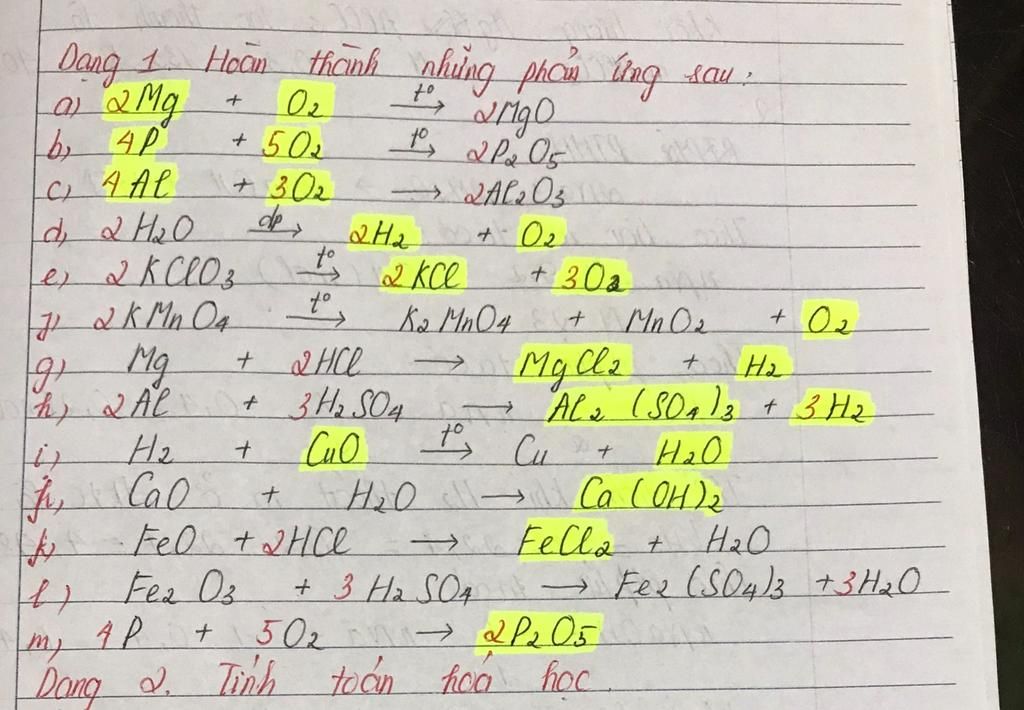 Dạng 1. Hoàn thành những phản ứng sau:
a) 2Mg + O₂ t° → 2MgO
b) 4P + 5O₂ t° → 2P₂O₅
c) 4Al + 3O₂ → 2Al₂O₃
d) 2H₂O đp → 2H₂ + O₂
e) 2KClO₃ t° → 2KCl + 3O₂
f) 2KMnO₄ t° → K₂MnO₄ + MnO₂ + O₂
g) Mg + 2HCl → MgCl₂ + H₂
h) 2Al + 3H₂SO₄ → Al₂(SO₄)₃ + 3H₂
i) H₂ + CuO t° → Cu + H₂O
j) CaO + H₂O → Ca(OH)₂
k) FeO + 2HCl → FeCl₂ + H₂O
l) Fe₂O₃ + 3H₂SO₄ → Fe₂(SO₄)₃ + 3H₂O
m) 4P + 5O₂ → 2P₂O₅
Dạng 2. Tính toán hoá học.